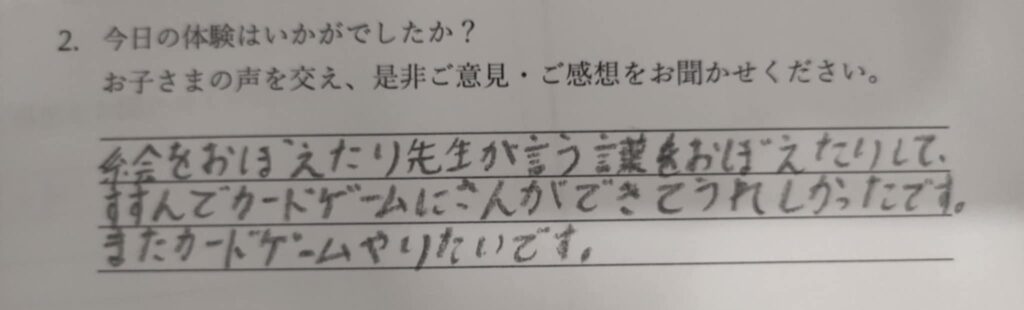 2. 今日の体験はいかがでしたか？
お子さまの声を交え、是非ご意見・ご感想をお聞かせください。
絵をおぼえたり先生が言う言葉をおぼえたりして、
すすんでカードゲームにさんかできてうれしかったです。
またカードゲームやりたいです。